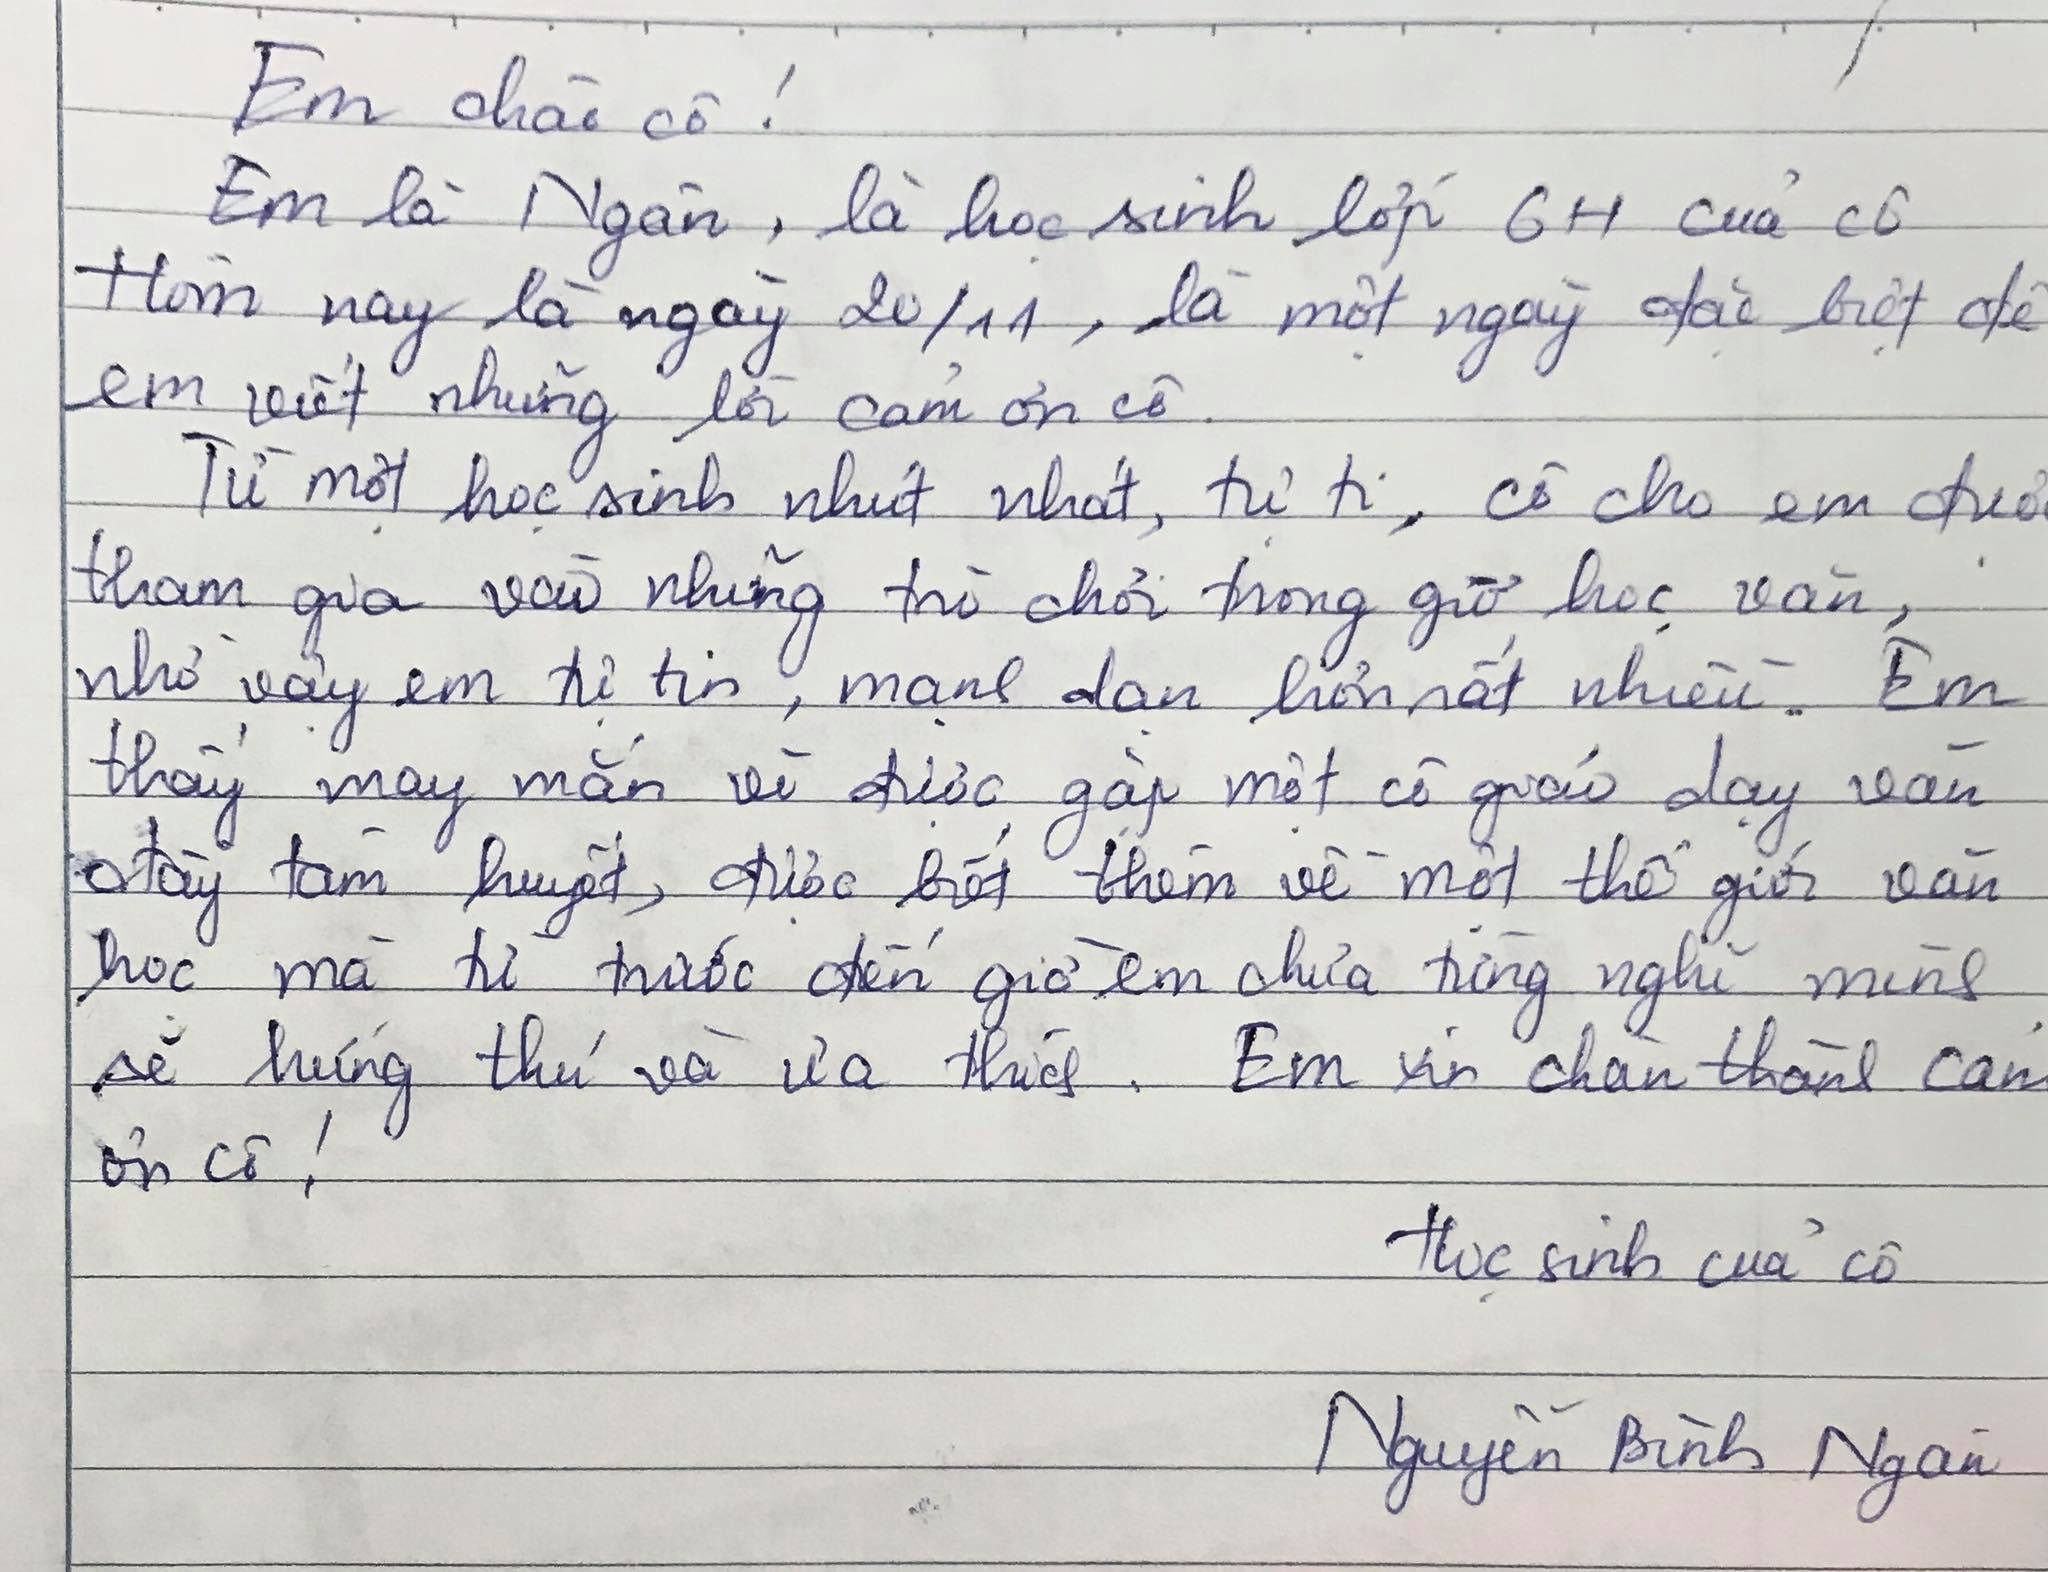 Em chào cô!
Em là Ngân, là học sinh lớp 6H của cô
Hôm nay là ngày 20/11, là một ngày đặc biệt để
em viết những lời cảm ơn cô.
Từ một học sinh nhút nhát, tự ti, cô cho em được
tham gia vào những trò chơi trong giờ học văn,
nhờ vậy em tự tin, mạnh dạn hơn rất nhiều. Em
thấy may mắn vì được gặp một cô giáo dạy văn
đầy tâm huyết, được biết thêm về một thế giới văn
học mà từ trước đến giờ em chưa từng nghĩ mình
sẽ hứng thú và ưa thích. Em xin chân thành cảm
ơn cô!
Học sinh của cô
Nguyễn Bình Ngân